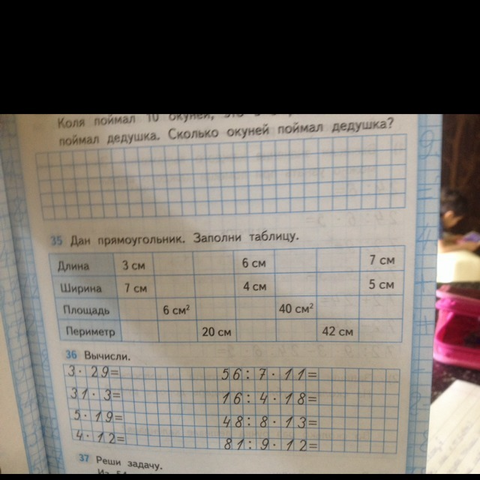 Коля поймал 10 окуней, это в
поймал дедушка. Сколько окуней поймал дедушка?
35 Дан прямоугольник. Заполни таблицу.
Длина 3 см 6 см 7 см
Ширина 7 см 4 см 5 см
Площадь 6 см² 40 см²
Периметр 20 см 42 см
36 Вычисли.
3·29= 56:7·11=
31·3= 16:4·18=
5·19= 48:8·13=
4·12= 81:9·12=
37 Реши задачу.